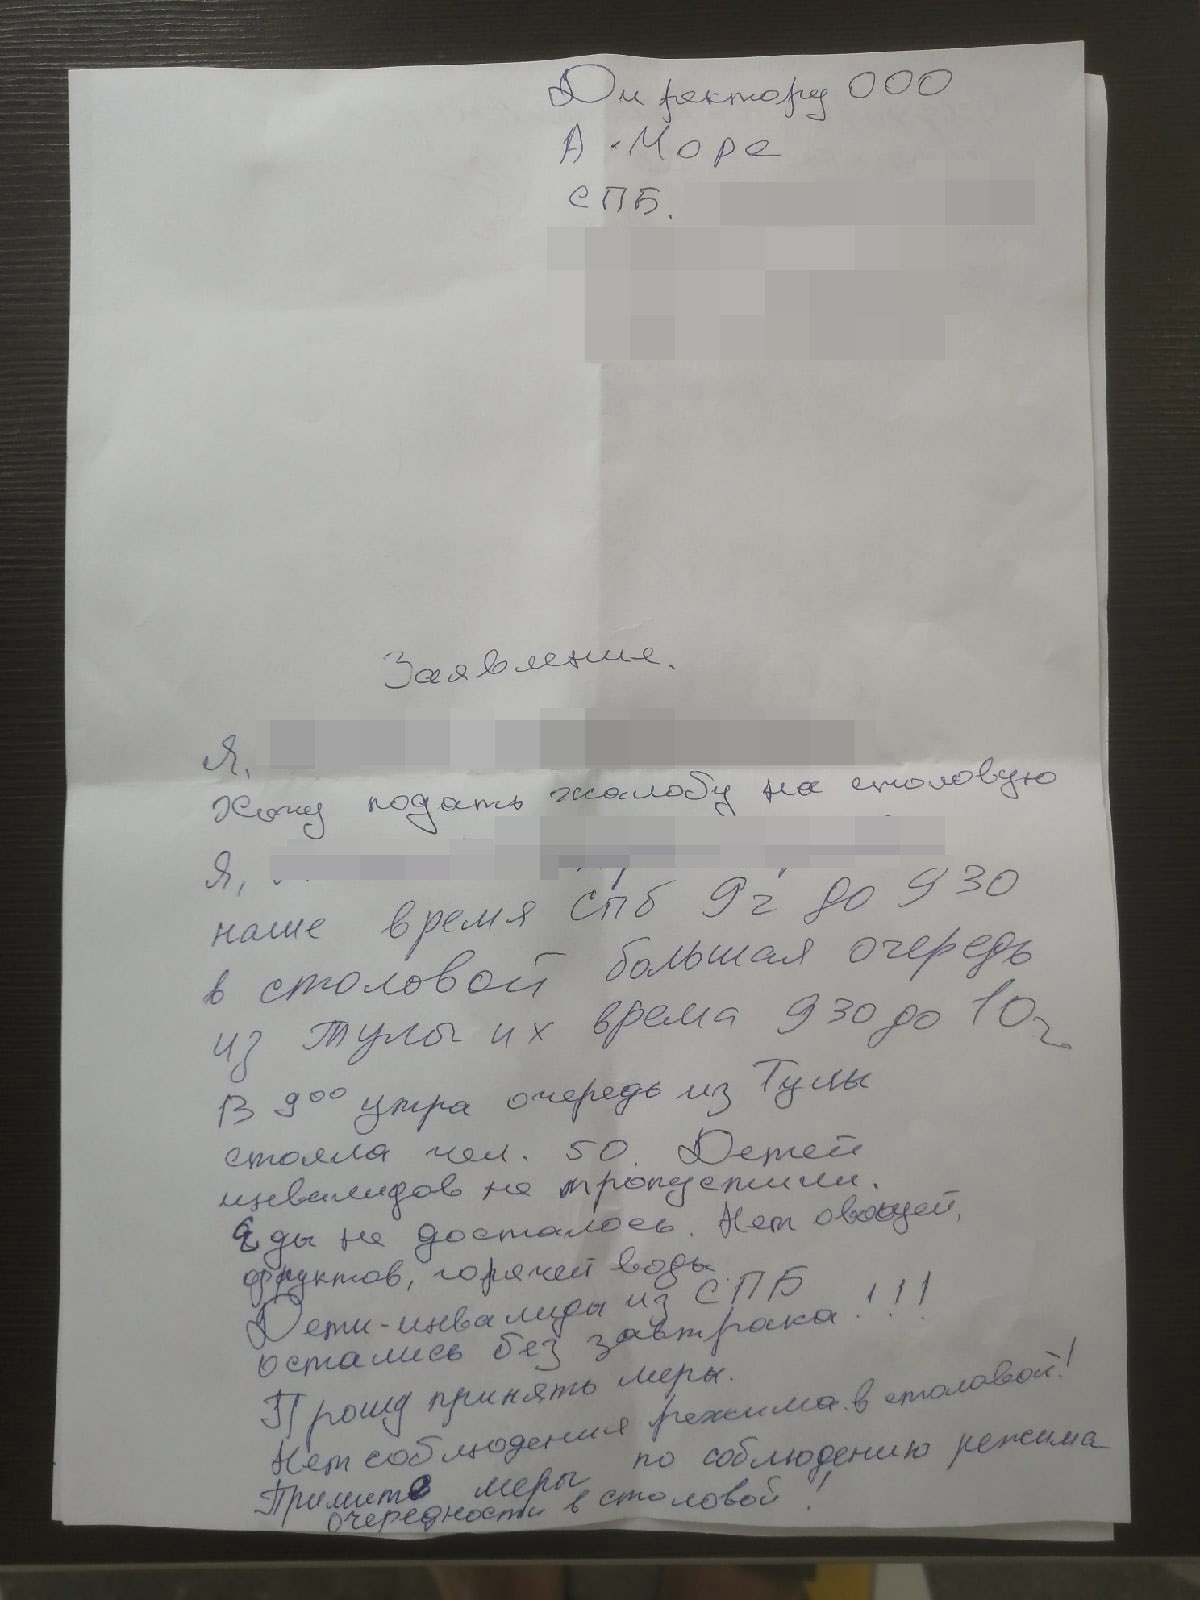 Директору ООО
А-Море
СПБ.
Заявление.
Я,
Хочу подать жалобу на столовую
Я,
наше время Спб 9ч до 9 30
в столовой большая очередь
из Тулы их время 9 30 до 10ч
В 9 00 утра очередь из Тулы
стояла чел. 50. Детей
инвалидов не пропустили.
Еды не досталось. Нет овощей,
фруктов, горячей воды
Дети-инвалиды из СПБ
остались без завтрака!!!
Прошу принять меры.
Нет соблюдения режима в столовой!
Примите меры по соблюдению режима
очередности в столовой!